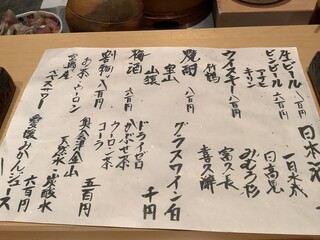 生ビール 八百円
ビンビール 八百円
アサヒ
キリン
ウイスキー 八百円
竹鶴
焼酎 八百円
山猿
梅酒 六百円
割物 八百円
お茶・ウーロン
ペリエ
日本酒
一日
日高見
みむろ杉
富久長
喜久酔
グラスワイン白 千円
ドライゼロ
かぶせ茶
ウーロン茶
コーラ 五百円
奥会津金山
天然水
炭酸水
愛媛みかんジュース 六百円